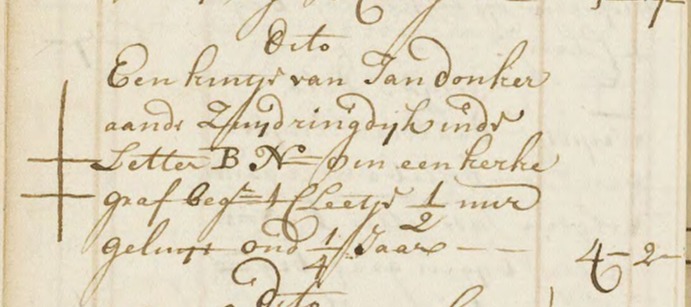 dito
Een kintje van Jan donker
aande Zuijdringdijk inde
Letter B. No in een kerke
graf beg= 1 Cleetje 1/2 uur
geluijt oud 1/4 Jaar — — 4 - 2 -
dito